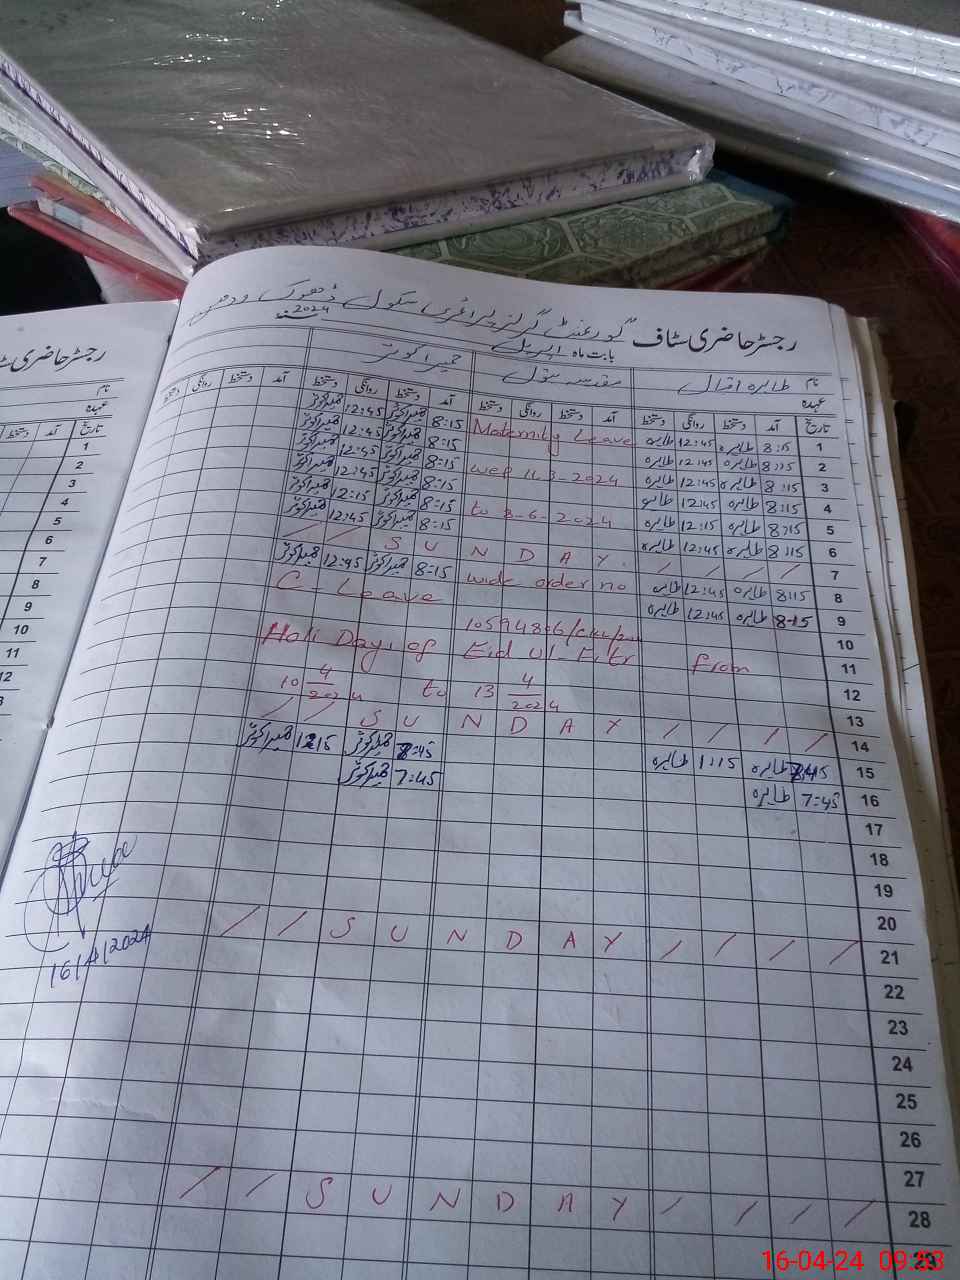 رجسٹر حاضری سٹاف "گورنمنٹ گرلز پرائمری سکول ڈھوک ودھن
بابت ماہ اپریل 2024
نام طاہرہ اقبال مقدسہ بتول حمیرا کوثر
عہدہ
تاریخ آمد دستخط روانگی دستخط آمد دستخط روانگی دستخط آمد دستخط روانگی دستخط آمد دستخط روانگی دستخط
1 8:15 طاہرہ 12:45 طاہرہ Maternity Leave 8:15 حمیرا کوثر 12:45 حمیرا کوثر
2 8:15 طاہرہ 12:45 طاہرہ 8:15 حمیرا کوثر 12:45 حمیرا کوثر
3 8:15 طاہرہ 12:45 طاہرہ wef 11-3-2024 8:15 حمیرا کوثر 12:45 حمیرا کوثر
4 8:15 طاہرہ 12:45 طاہرہ 8:15 حمیرا کوثر 12:45 حمیرا کوثر
5 8:15 طاہرہ 12:15 طاہرہ to 8-6-2024 8:15 حمیرا کوثر 12:15 حمیرا کوثر
6 8:15 طاہرہ 12:45 طاہرہ 8:15 حمیرا کوثر 12:45 حمیرا کوثر
7 / / S U N D A Y / / / /
8 8:15 طاہرہ 12:45 طاہرہ wide order no 8:15 حمیرا کوثر 12:45 حمیرا کوثر
9 8:15 طاہرہ 12:45 طاہرہ C-Leave
10
11 Holi Days of Eid Ul Fitr from
12 10 4/2024 to 13 4/2024
13
14 / / S U N D A Y / / / /
15 طاہرہ 1:15 طاہرہ 8:45 حمیرا کوثر حمیرا کوثر
16 7:45 طاہرہ 7:45 حمیرا کوثر
17
18
19
20
21 / / S U N D A Y / / / /
22
23
24
25
26
27
28 / / S U N D A Y / / / /
29
16/4/2024
رجسٹر حاضری
نام
عہدہ
تاریخ آمد دستخط
1
2
3
4
5
6
7
8
9
10
11
12
16-04-24 09:53